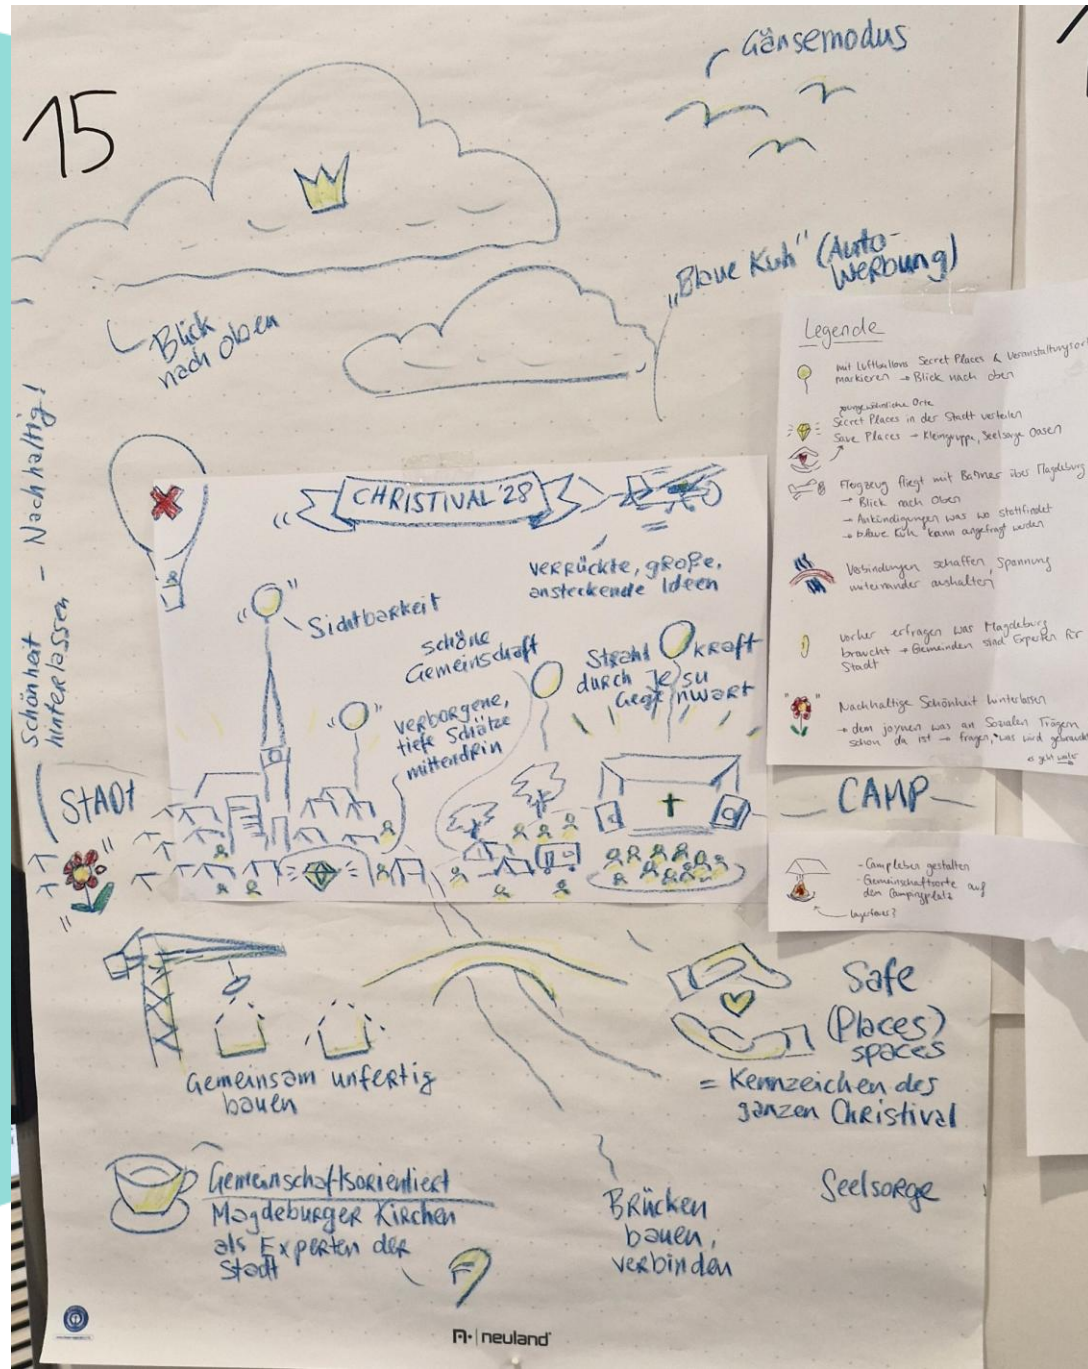 15
Gänsemodus
„Blaue Kuh" (Auto-
Werbung)
Blick
nach oben
Schönheit - Nachhaltig!
hinterlassen
CHRISTIVAL '28
verrückte, große,
ansteckende Ideen
Sichtbarkeit
schöne
Gemeinschaft
Strahlkraft
durch Jesu
Gegenwart
verborgene,
tiefe Schätze
mittendrin
STADT
CAMP
Legende
mit Luftballons Secret Places & Veranstaltungsort
markieren → Blick nach oben
ungewöhnliche Orte
Secret Places in der Stadt verteilen
Save Places → Kleingruppe, Seelsorge Oasen
Flugzeug fliegt mit Banner über Magdeburg
→ Blick nach Oben
→ Ankündigungen was wo stattfindet
→ blaue Kuh kann angefragt werden
Verbindungen schaffen, Spannung
miteinander aushalten
vorher erfragen was Magdeburg
braucht → Gemeinden sind Experten für
Stadt
Nachhaltige Schönheit hinterlassen
→ dem joynen was an Sozialen Trägern
schon da ist → fragen, was wird gebraucht
- Campleben gestalten
- Gemeinschaftsorte auf
dem Campingplatz
Lagerfeuer?
Gemeinsam unfertig
bauen
Safe
(Places)
spaces
= Kennzeichen des
ganzen Christival
Gemeinschaftsorientiert
Magdeburger Kirchen
als Experten der
Stadt
Brücken
bauen,
verbinden
Seelsorge
neuland